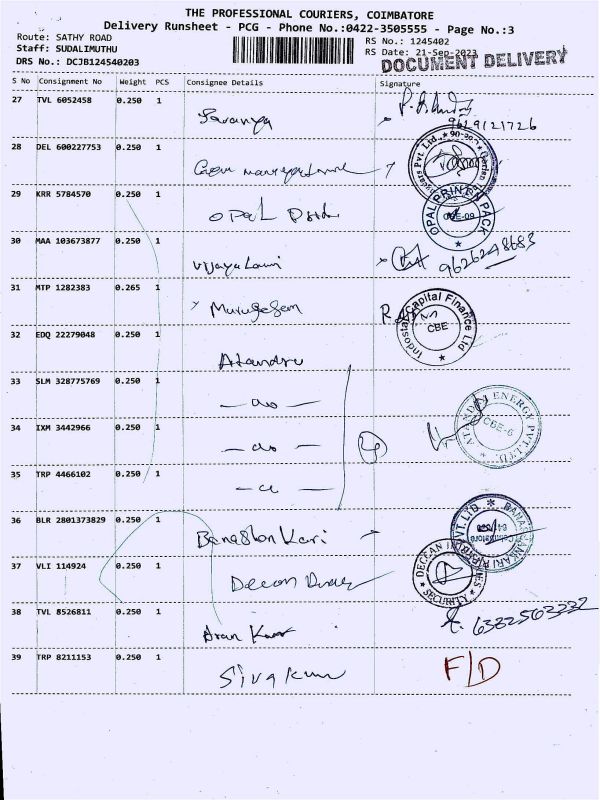 THE PROFESSIONAL COURIERS, COIMBATORE
Delivery Runsheet - PCG - Phone No.:0422-3505555 - Page No.:3
Route: SATHY ROAD
RS No.: 1245402
Staff: SUDALIMUTHU
RS Date: 21-Sep-2023
DRS No.: DCJB124540203
DOCUMENT DELIVERY
S No Consignment No Weight PCS Consignee Details Signature
27 TVL 6052458 0.250 1 Saranya
9629121726
28 DEL 600227753 0.250 1
29 KRR 5784570 0.250 1 OPAL
OPAL PRINT PACK CBE-09
30 MAA 103673877 0.250 1 Vijaya Laxmi
9626248683
31 MTP 1282383 0.265 1 Murugesan
Indostar Capital Finance Ltd CBE
32 EDQ 22279048 0.250 1
33 SLM 328775769 0.250 1 - do -
34 IXM 3442966 0.250 1 - do -
ENERGY PVT.LTD. CBE-6
35 TRP 4466102 0.250 1
36 BLR 2801373829 0.250 1
37 VLI 114924 0.250 1 Deccan
DECCAN SECURITY
38 TVL 8526811 0.250 1
39 TRP 8211153 0.250 1 Sivakum
F/D